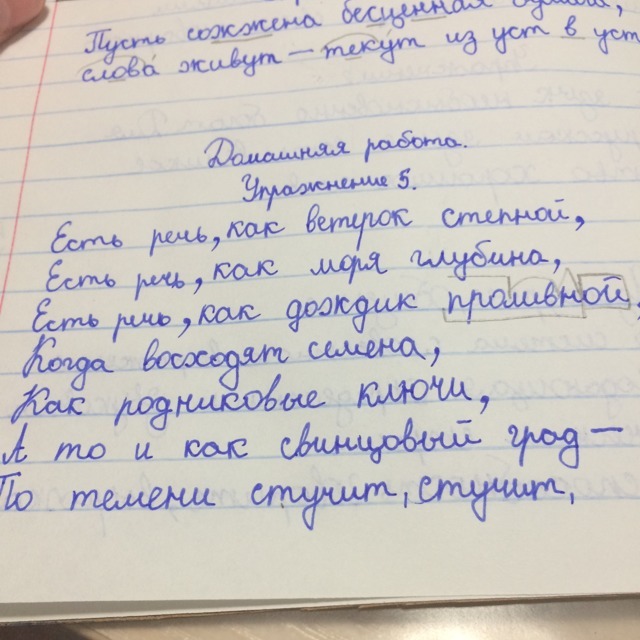 Пусть сожжена бесценная
слова́ живут — теку́т из уст в уст
Домашняя работа.
Упражнение 5.
Есть речь, как ветерок степной,
Есть речь, как моря глубина,
Есть речь, как дождик проливной,
Когда восходят семена,
Как родниковые ключи,
А то и как свинцовый град —
По темени стучит, стучит,